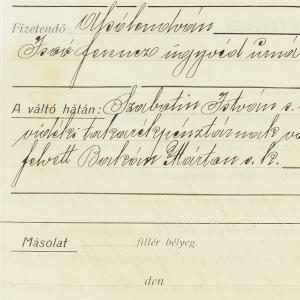 Fizetendő Alsólendván
Isoó Ferencz ügyvéd úrnál
A váltó hátán: Szabatin István s.
vidéki takarékpénztárnak
felvett Bakán Márton s. k.
Másolat fillér bélyeg.
den